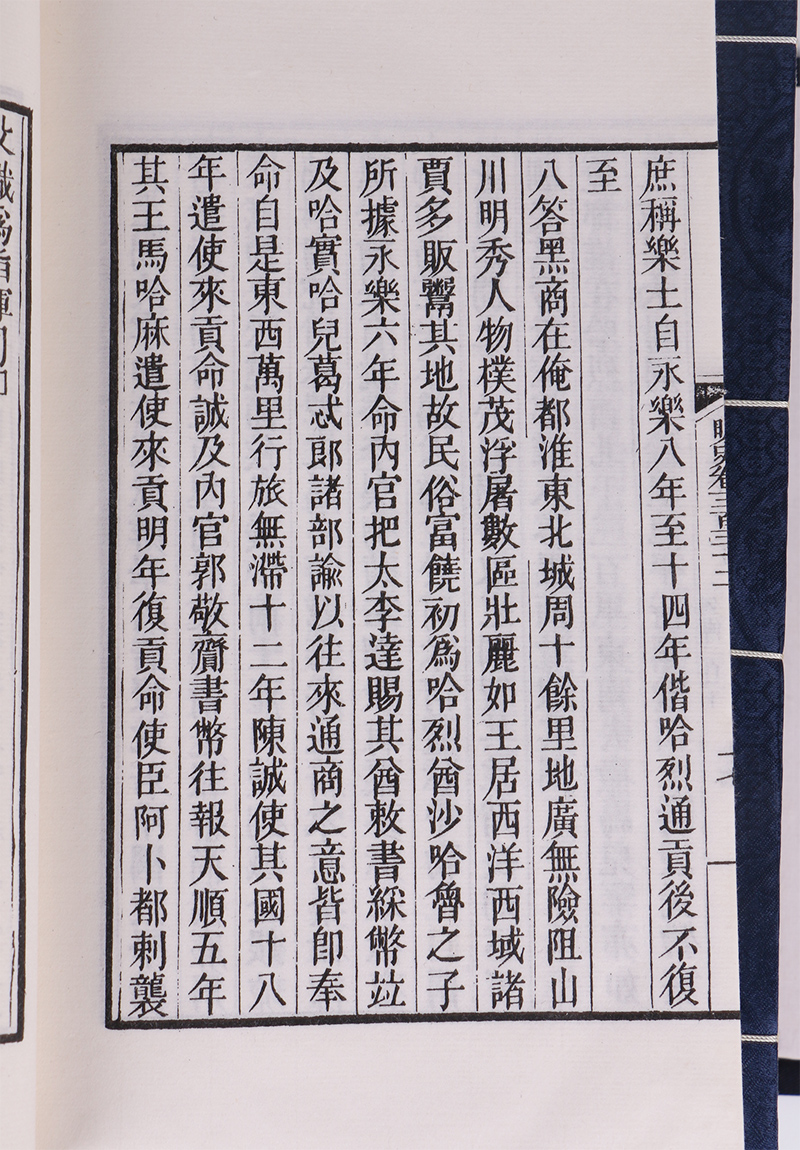 庶稱樂土自永樂八年至十四年偕哈烈通貢後不復
至
八答黑商在俺都淮東北城周十餘里地廣無險阻山
川明秀人物樸茂浮屠數區壯麗如王居西洋西域諸
賈多販鬻其地故民俗富饒初爲哈烈酋沙哈魯之子
所據永樂六年命內官把太李達賜其酋敕書綵幣竝
及哈實哈兒葛忒郎諸部諭以往來通商之意皆卽奉
命自是東西萬里行旅無滯十二年陳誠使其國十八
年遣使來貢命誠及內官郭敬齎書幣往報天順五年
其王馬哈麻遣使來貢明年復貢命使臣阿卜都剌襲
明史卷三百三十二